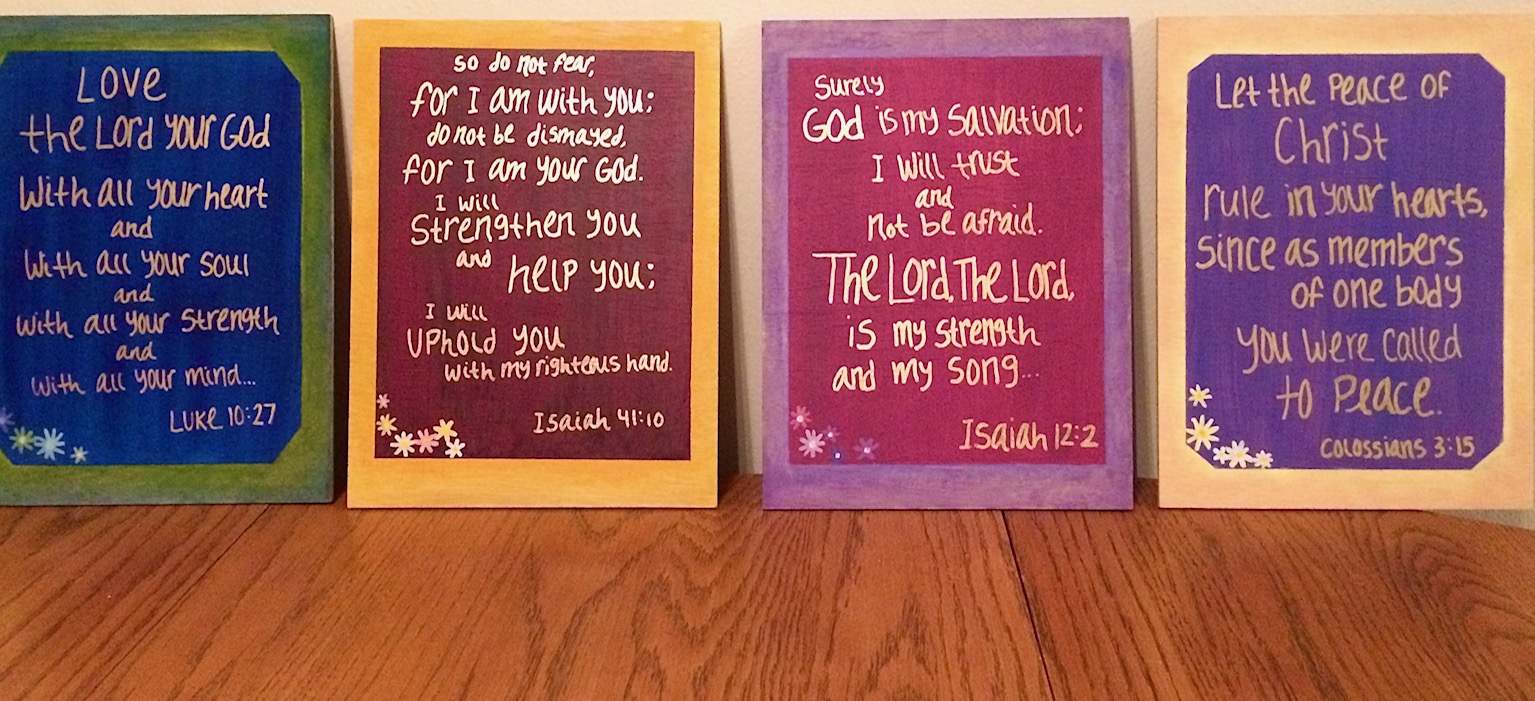 Love
the Lord your God
with all your heart
and
with all your soul
and
with all your strength
and
with all your mind...
Luke 10:27
so do not fear,
for I am with you;
do not be dismayed,
for I am your God.
I will
strengthen you
and help you;
I will
uphold you
with my righteous hand.
Isaiah 41:10
Surely
God is my salvation;
I will trust
and
not be afraid.
The Lord, The Lord,
is my strength
and my song...
Isaiah 12:2
Let the peace of
Christ
rule in your hearts,
since as members
of one body
you were called
to peace.
Colossians 3:15